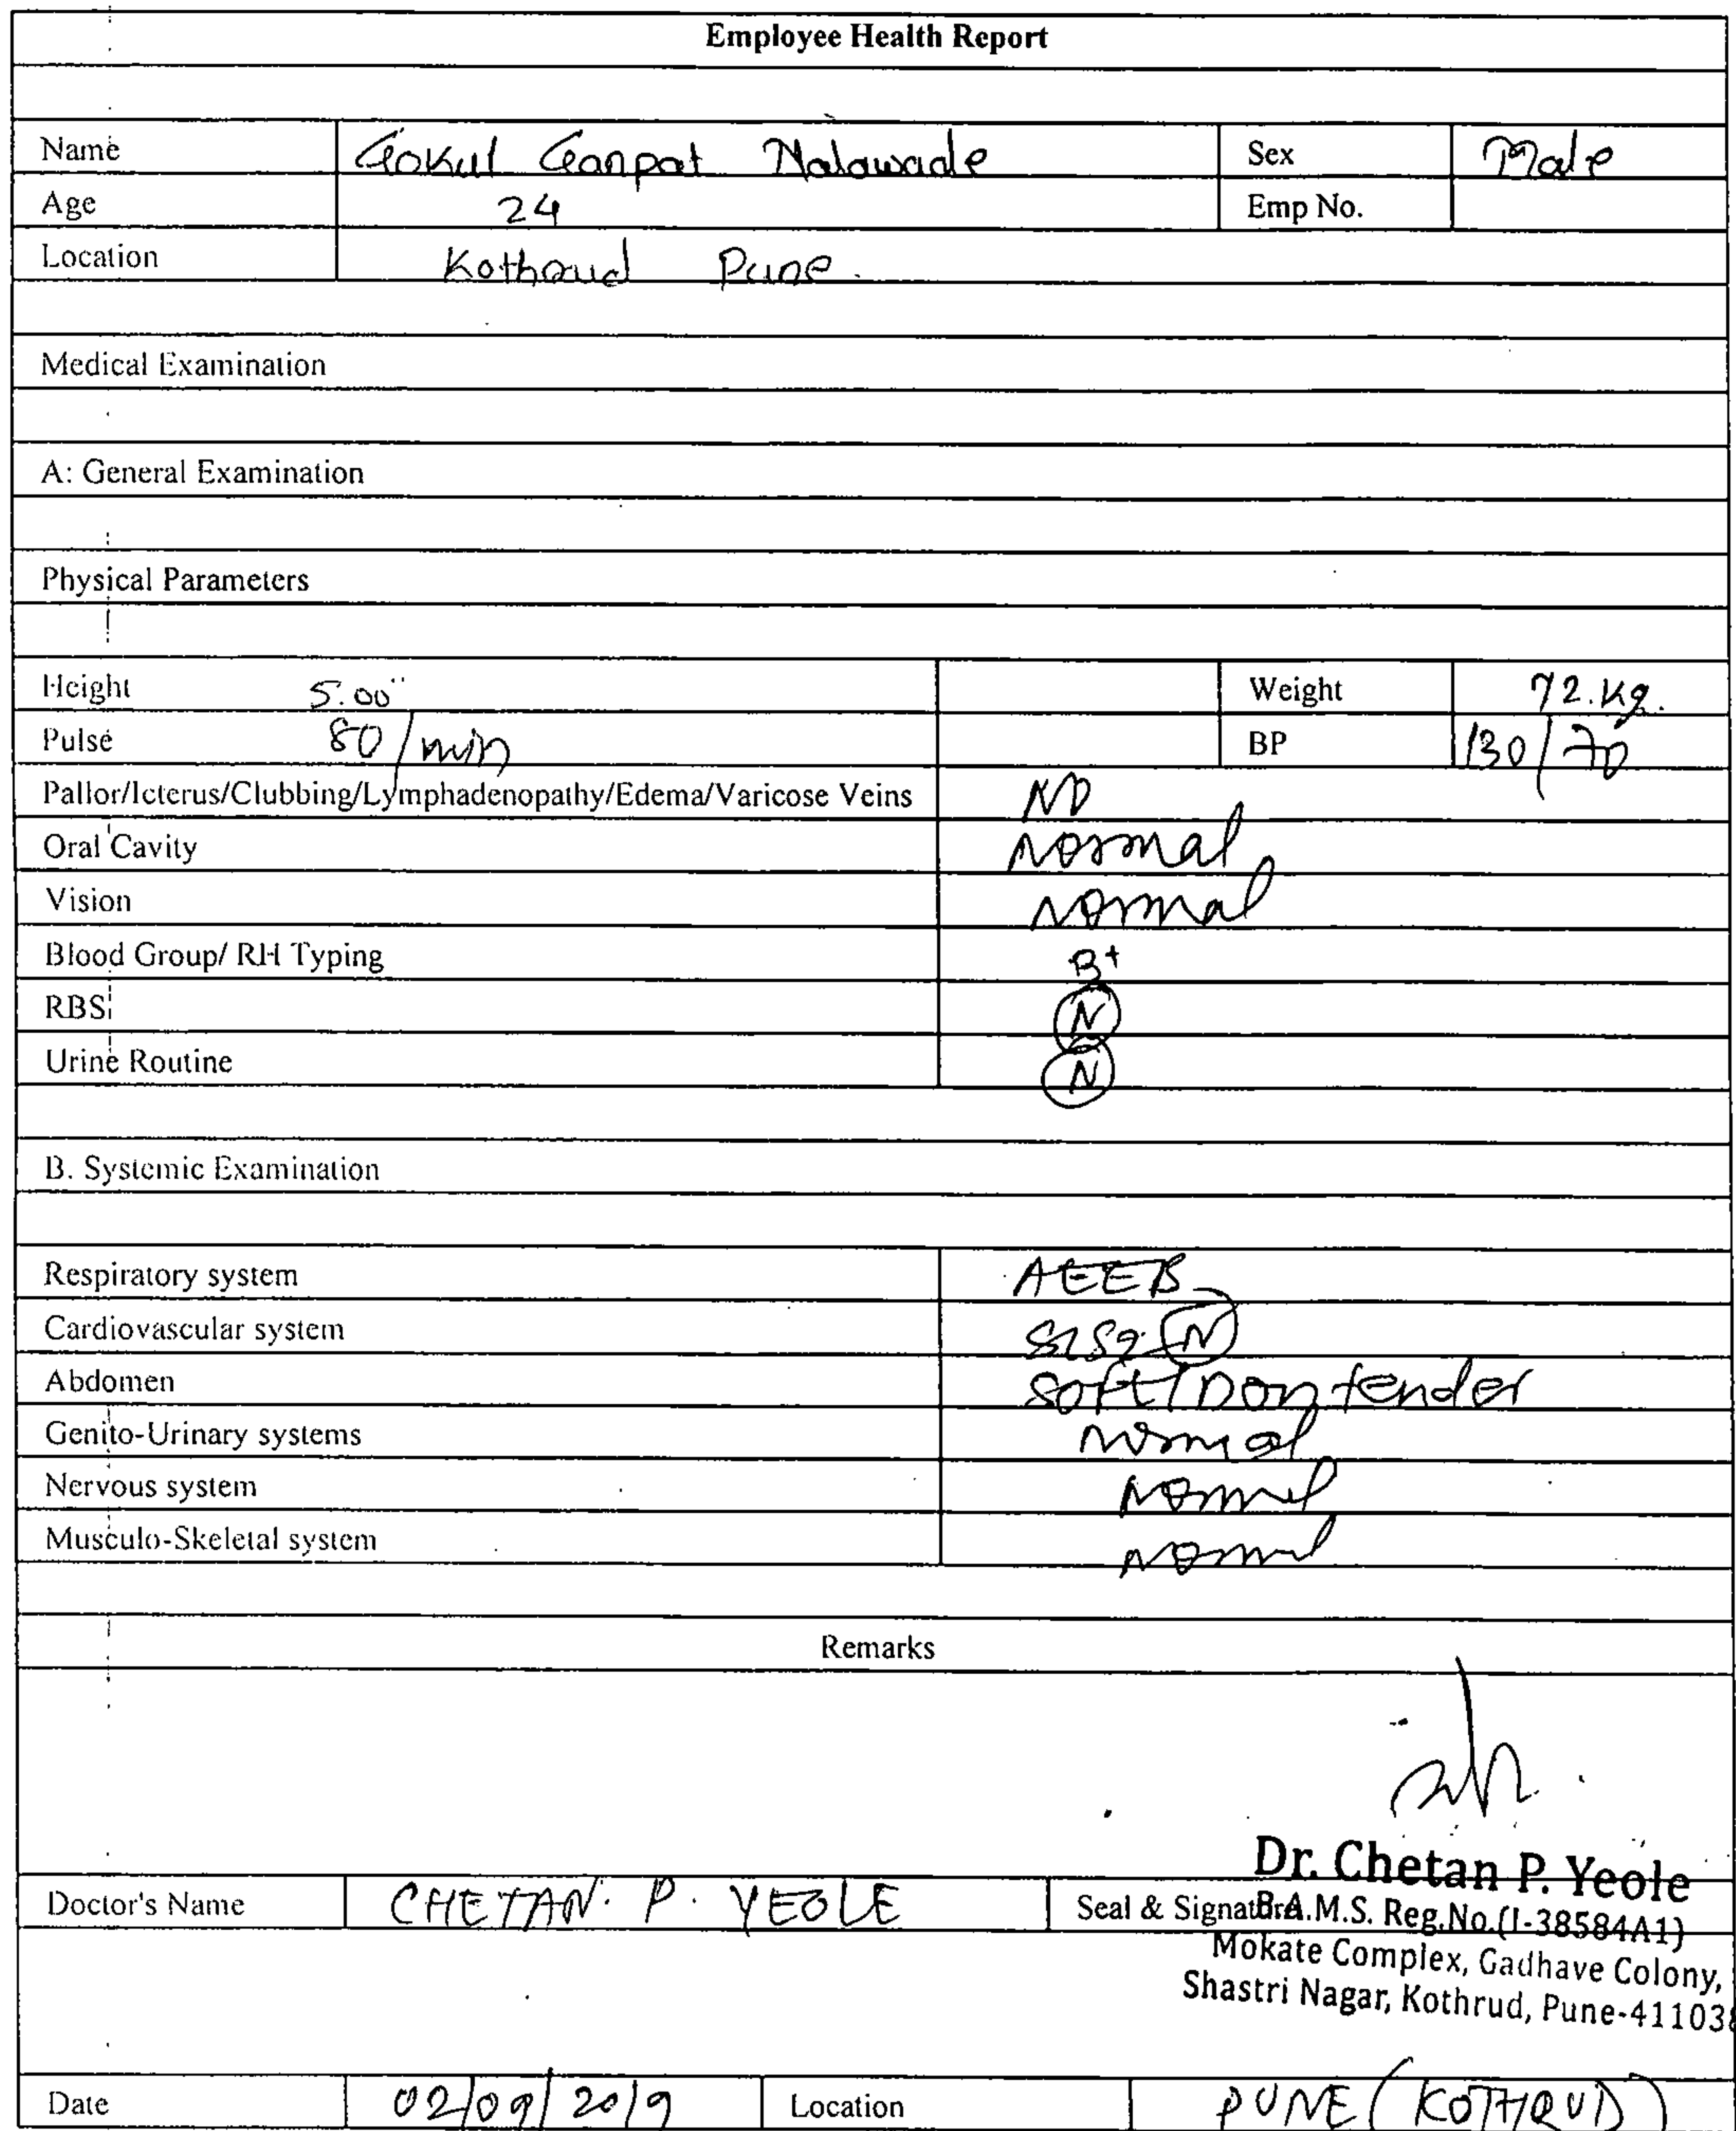 Employee Health Report
Name Gokul Ganpat Malawade Sex Male
Age 24 Emp No.
Location Kothrud Pune.
Medical Examination
A: General Examination
Physical Parameters
Height 5.00" Weight 72.Kg.
Pulse 80/min BP 130/70
Pallor/Icterus/Clubbing/Lymphadenopathy/Edema/Varicose Veins
Oral Cavity Normal
Vision Normal
Blood Group/ RH Typing B+
RBS N
Urine Routine N
B. Systemic Examination
Respiratory system AEEB
Cardiovascular system S1S2 N
Abdomen soft/Non tender
Genito-Urinary systems Normal
Nervous system Normal
Musculo-Skeletal system Normal
Remarks
Dr. Chetan P. Yeole
Doctor's Name CHETAN. P. YEOLE Seal & Signature B.A.M.S. Reg.No.(I-38584A1)
Mokate Complex, Gadhave Colony,
Shastri Nagar, Kothrud, Pune-411038
Date 02/09/2019 Location PUNE (KOTHRUD)